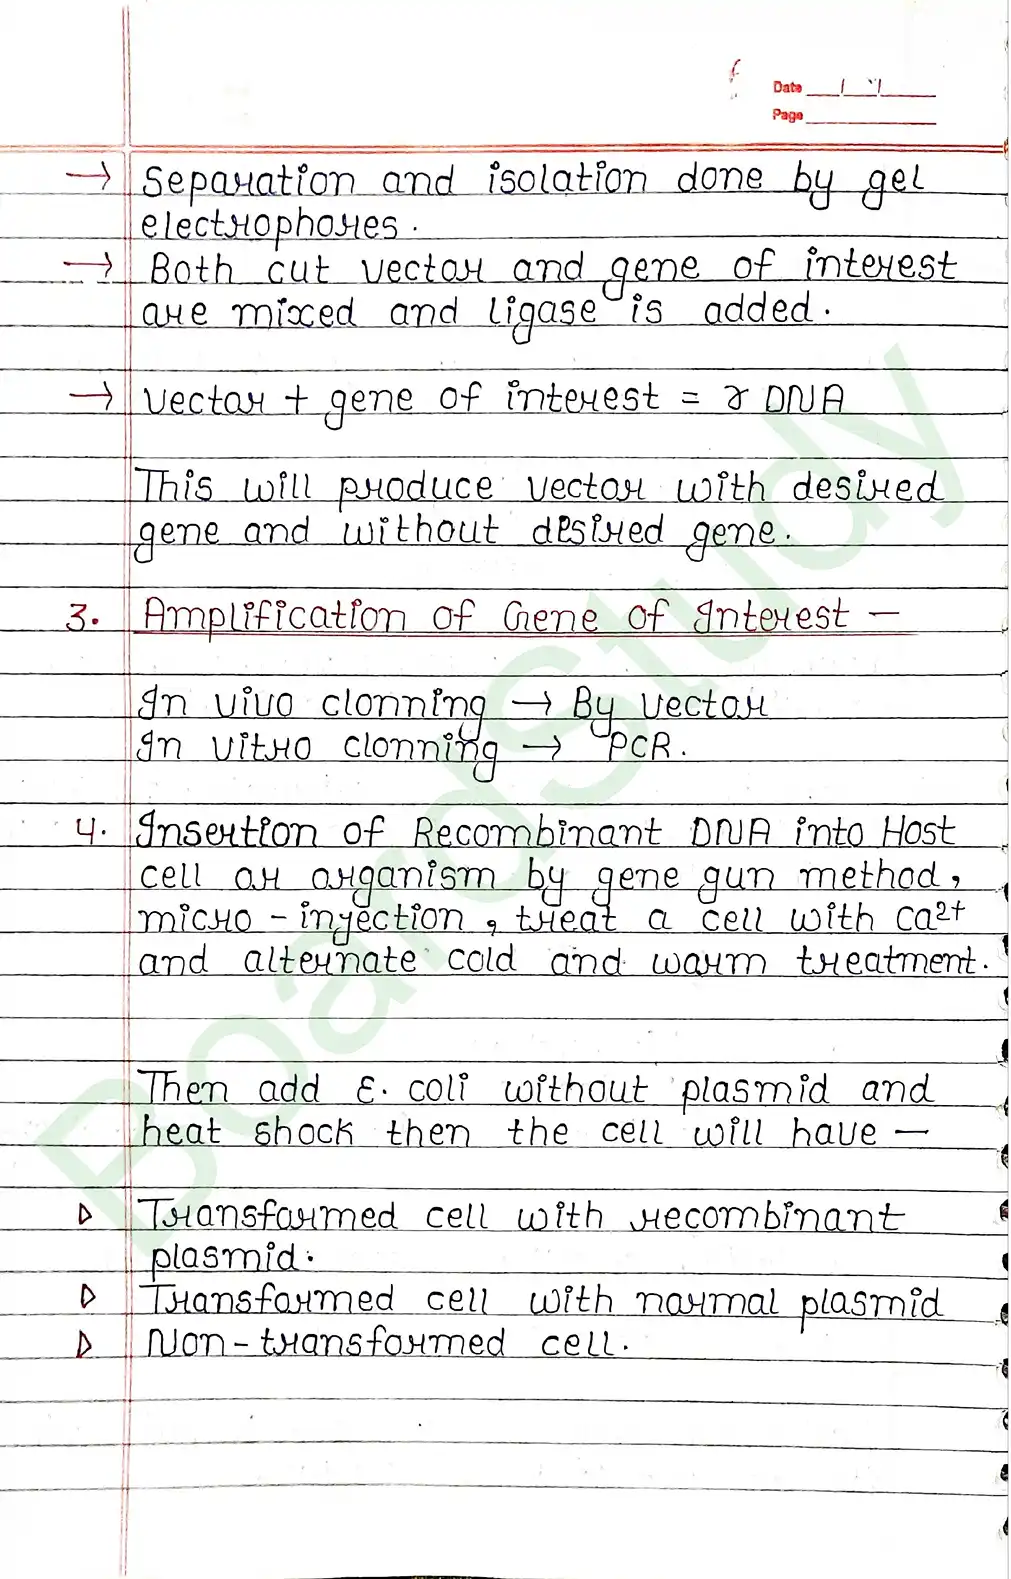 Date / /
Page
→ Separation and isolation done by gel
electrophores.
→ Both cut vector and gene of interest
are mixed and ligase is added.
→ vector + gene of interest = r DNA
This will produce vector with desired
gene and without desired gene.
3. Amplification of Gene of Interest —
In vivo clonning → By vector
In vitro clonning → PCR.
4. Insertion of Recombinant DNA into Host
cell or organism by gene gun method,
micro - injection, treat a cell with Ca2+
and alternate cold and warm treatment.
Then add E. coli without plasmid and
heat shock then the cell will have —
▷ Transformed cell with recombinant
plasmid.
▷ Transformed cell with normal plasmid
▷ Non-transformed cell.
BoardStudy